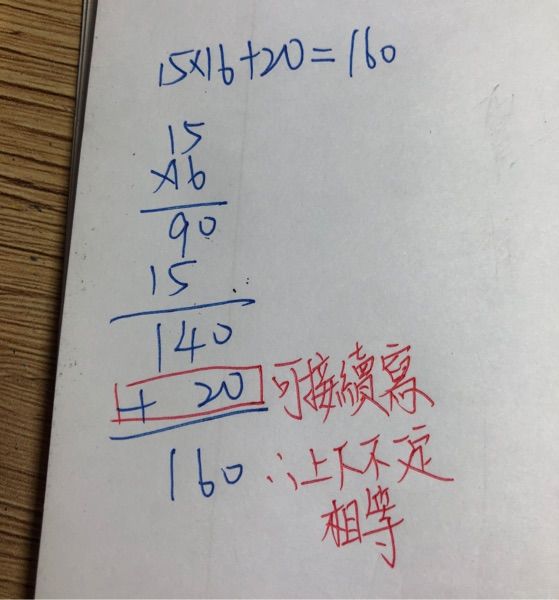 15×16+20=160
15
×16
90
15
140
+ 20 可接續寫
160 ∴上下不一定
相等